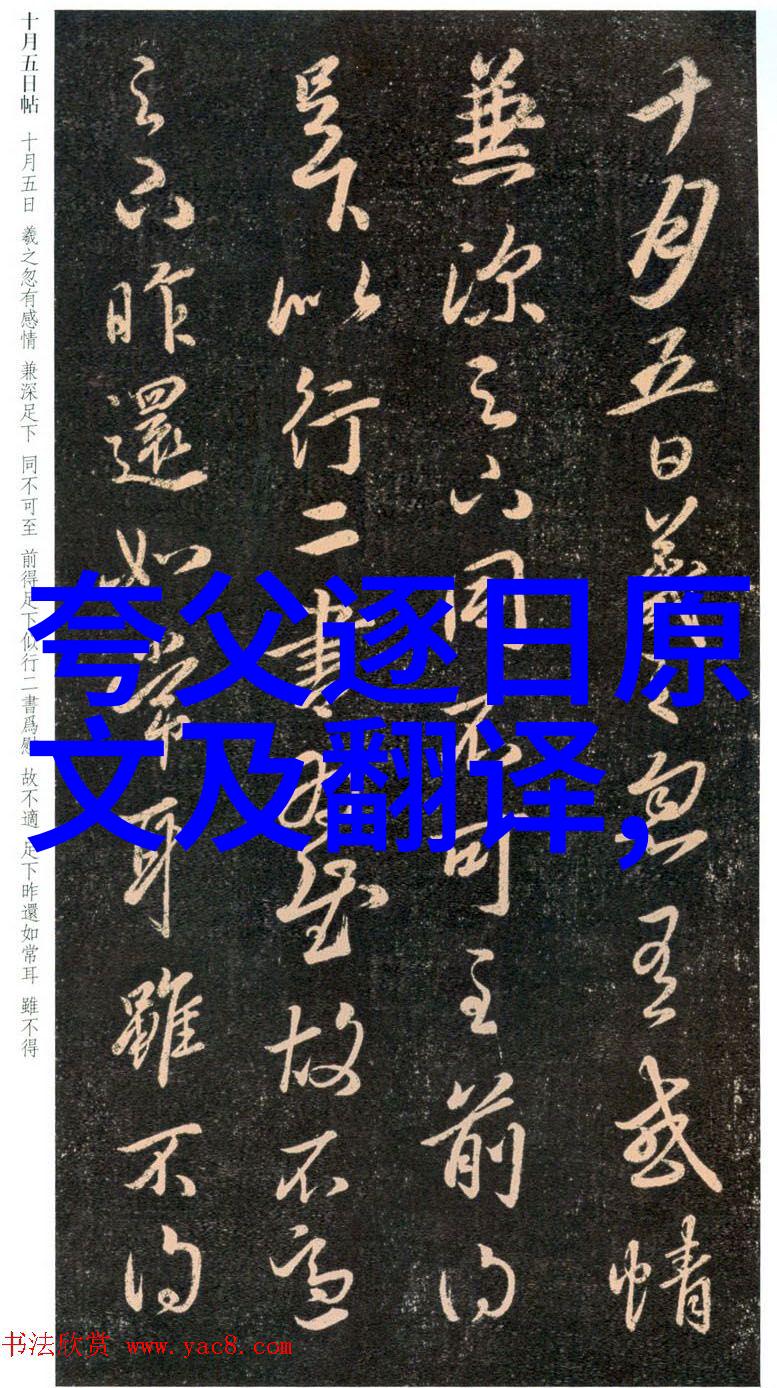 十月五日羲之忽有感情
兼深足下同不可至前得
足下似行二書爲慰故不適
足下昨還如常耳雖不得
十月五日帖 十月五日 羲之忽有感情 兼深足下 同不可至 前得足下似行二書爲慰 故不適 足下昨還如常耳 雖不得
夸父逐日原
文及翻译,
书法欣赏 www.yac8.com